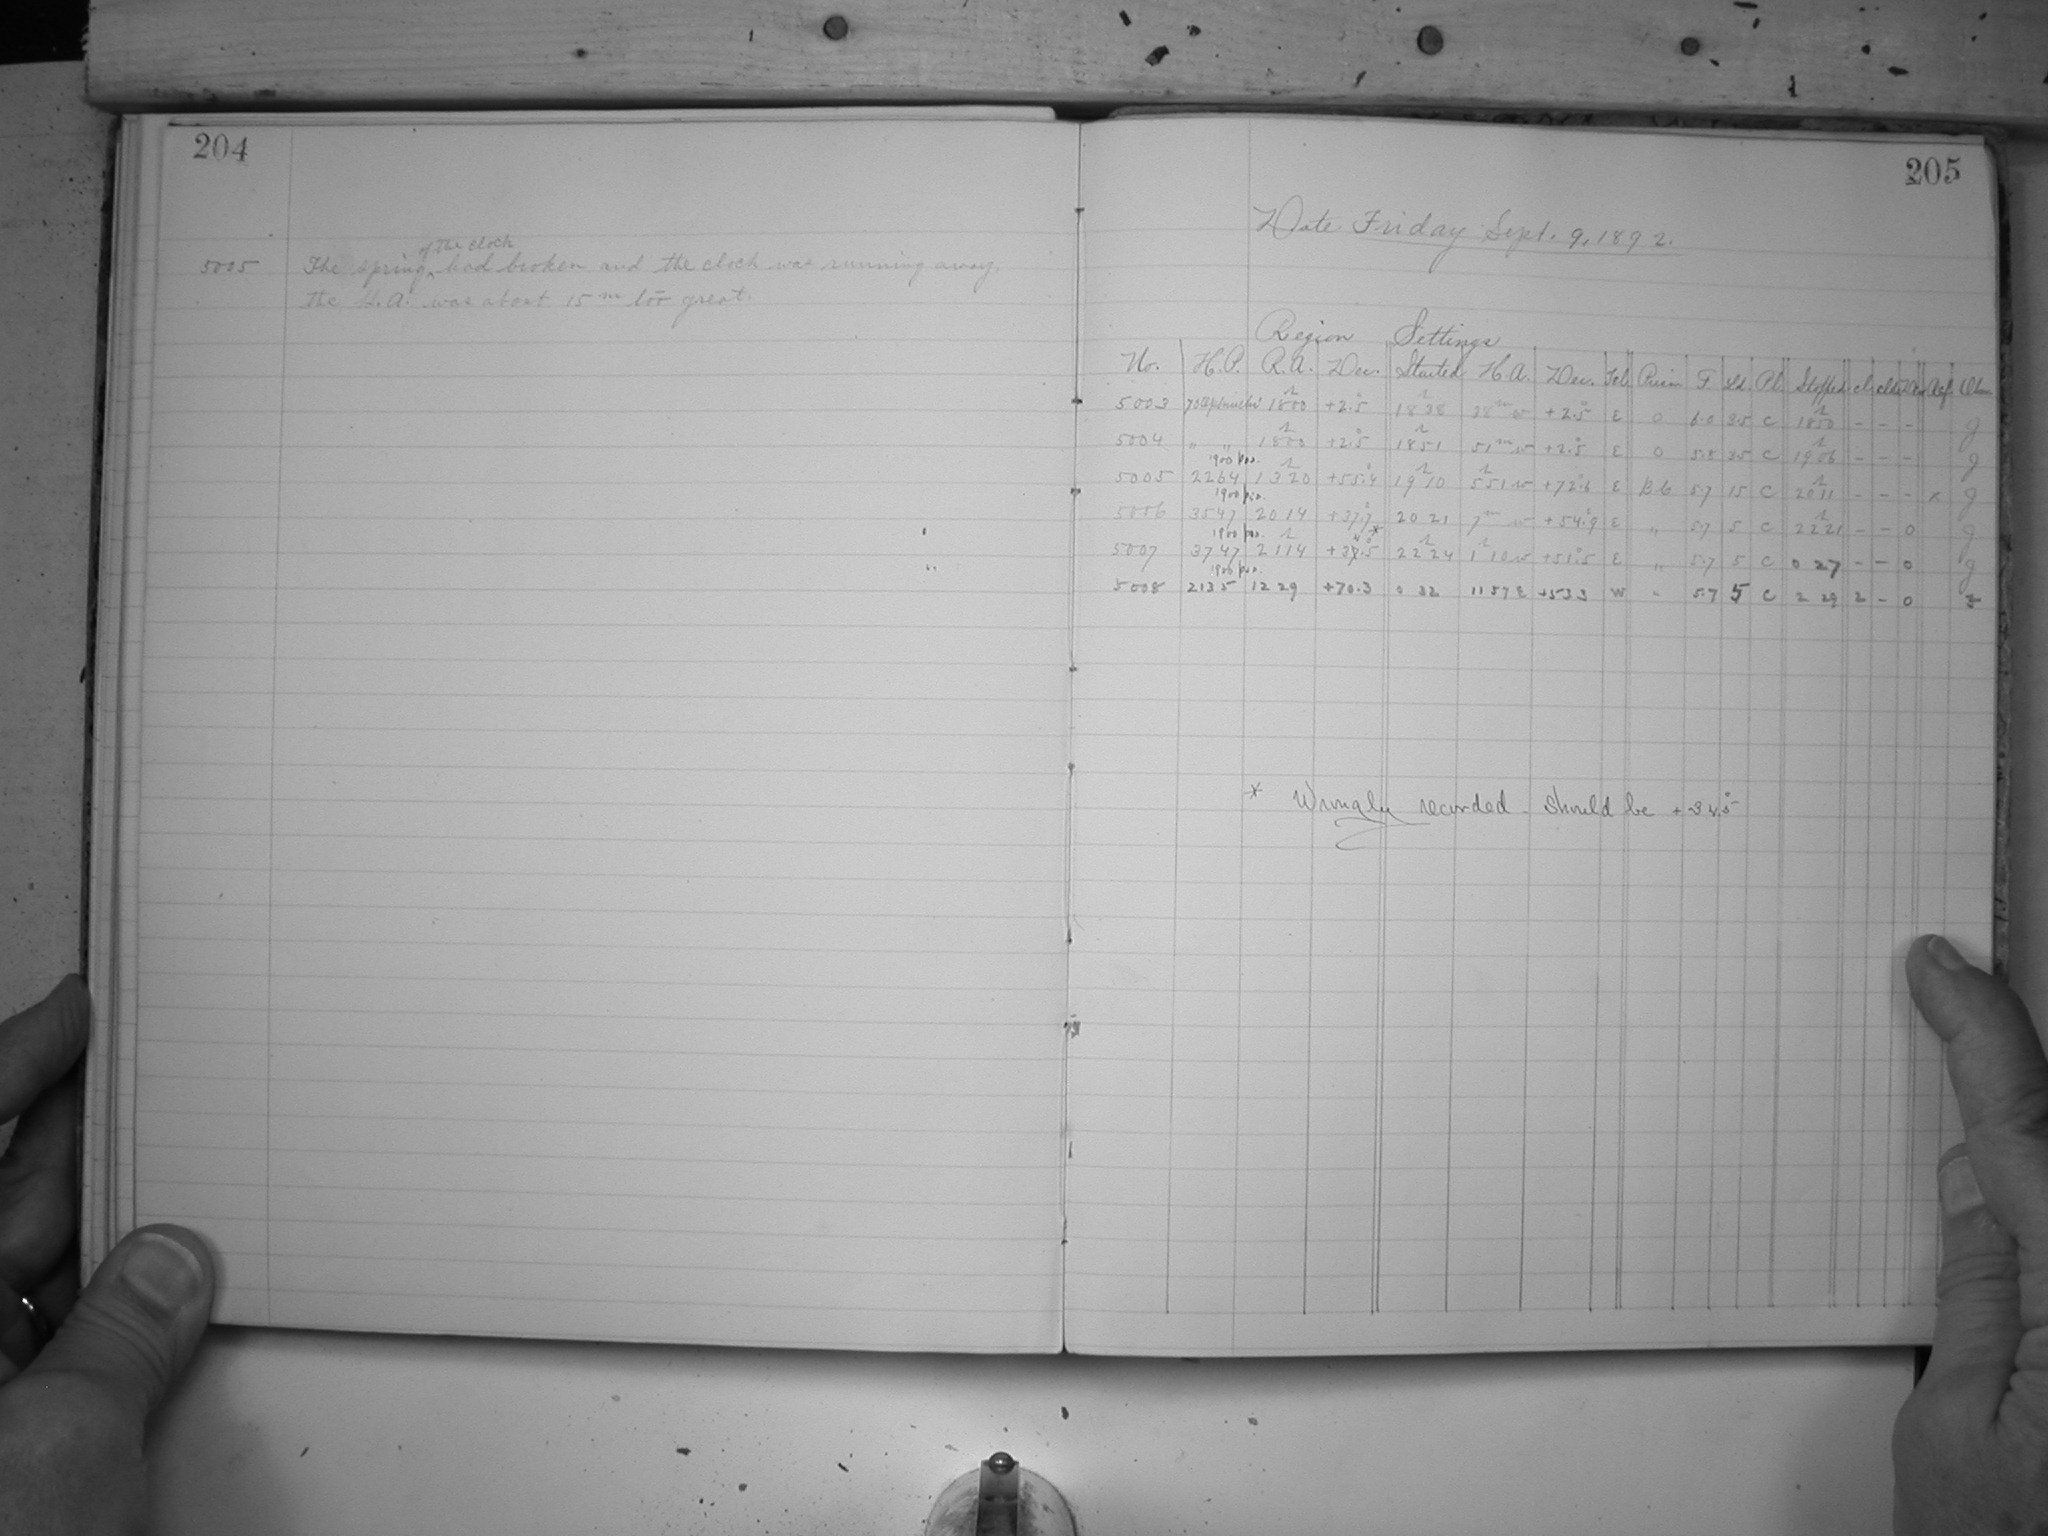 204
of the clock
5005 The spring had broken and the clock was running away,
the H.A. was about 15 m too great.
205
Date Friday Sept. 9, 1892.
Region Settings
No. H.P. R.A. Dec. Started H.A. Dec. Tel. Prism F Sd. Pl. Stopped cl. Ref. Obs.
5003 70 Ophiuchi 18h00 +2°.5 1838 38m w +2°.5 E 0 6.0 3.5 C 1850 - - - g
5004 " " 18h00 +2°.5 18h51 51m w +2°.5 E 0 5.8 35 C 19h06 - - - g
1900 pos.
5005 2264 13h20 +55°.4 19h10 5h51 w +72°.6 E B.6 5.7 15 C 20h11 - - - x g
1900 pos.
5006 3547 2014 +37°.7 2021 7m w +54°.9 E " 5.7 5 C 22h21 - - 0 g
1900 pos.
5007 3747 21h14 22h24 1h10 w +51°.5 E " 5.7 5 C 0 27 - - 0 g
1900 pos.
5008 2135 12 29 +70.3 0 32 11 57 E +53 3 W " 5.7 5 C 2 29 2 - 0
* Wrongly recorded - should be +34°.5